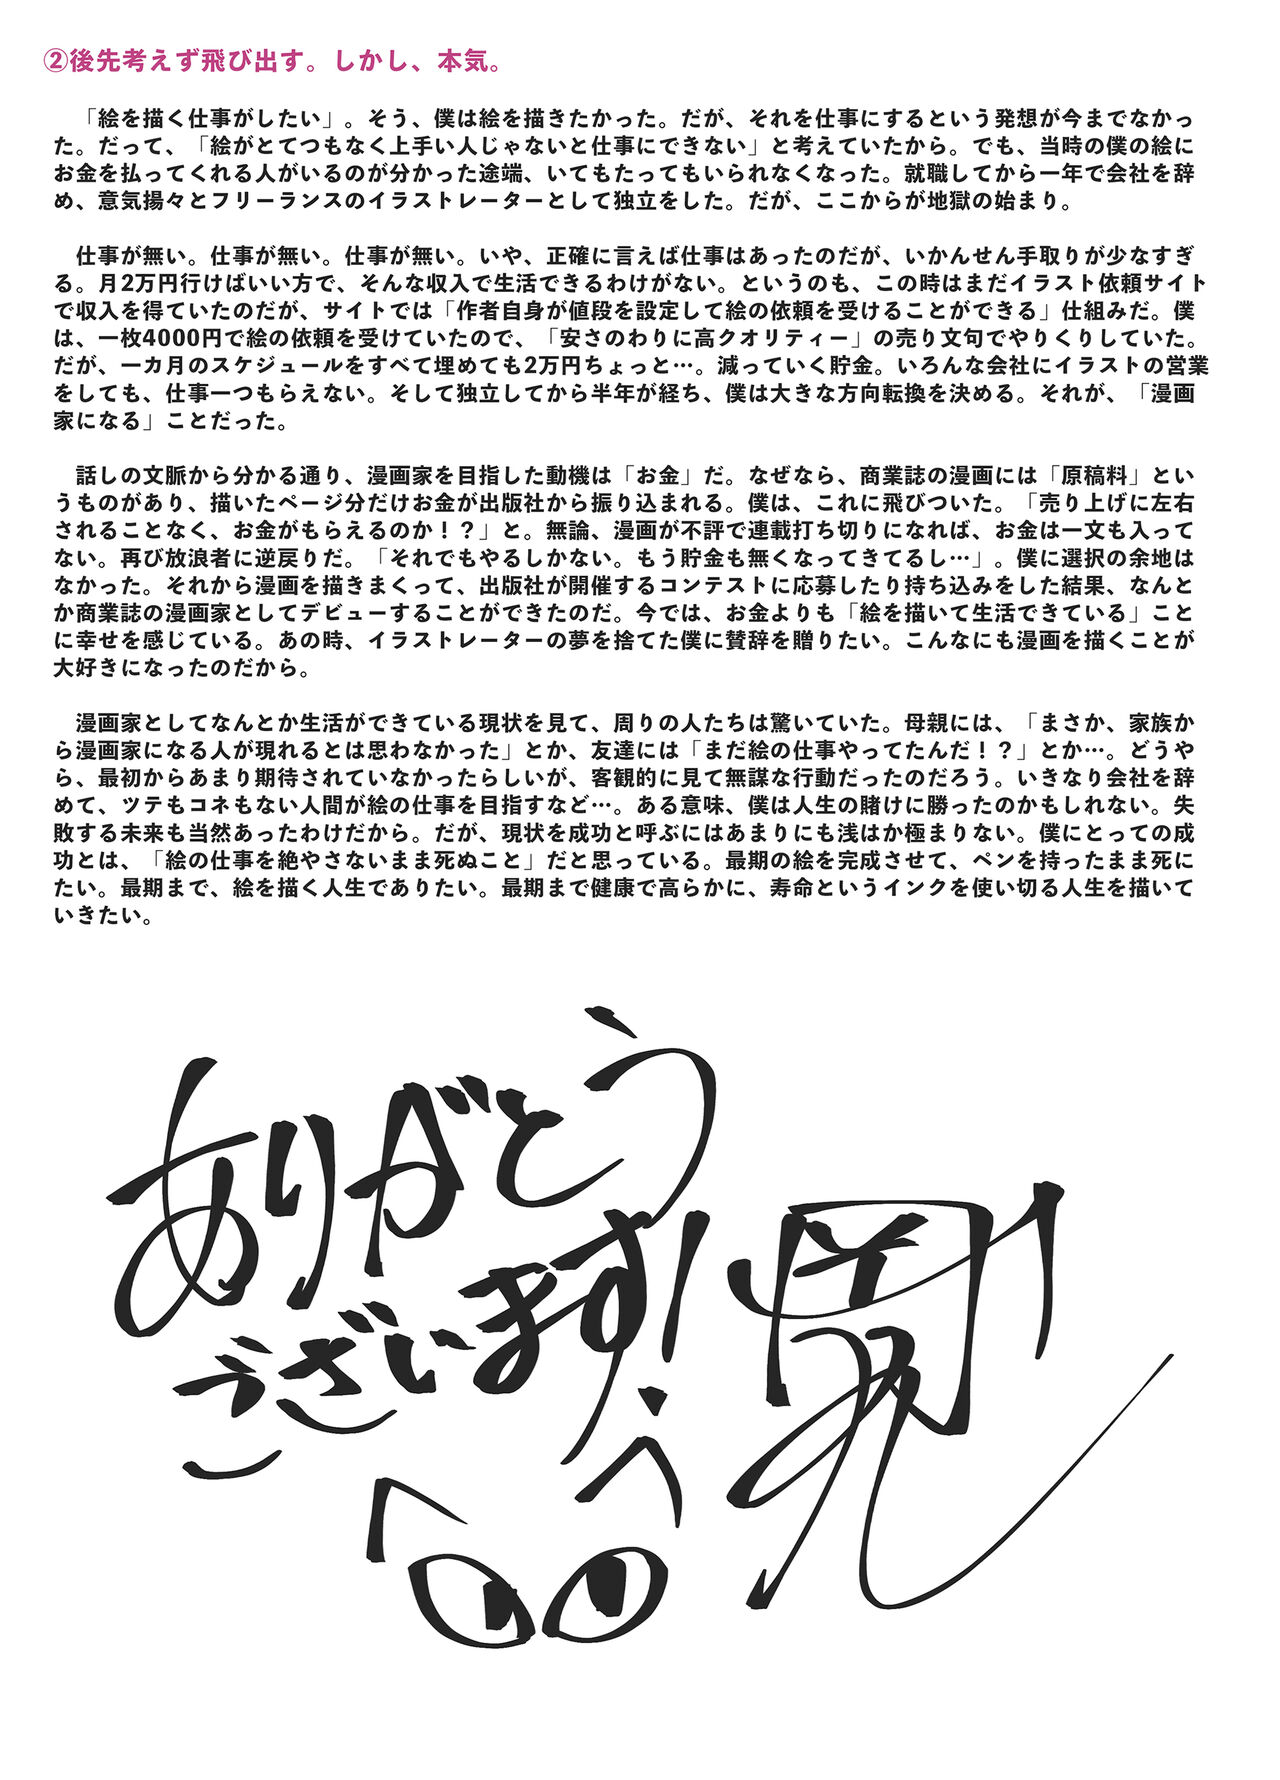 ②後先考えず飛び出す。しかし、本気。
「絵を描く仕事がしたい」。そう、僕は絵を描きたかった。だが、それを仕事にするという発想が今までなかっ
た。だって、「絵がとてつもなく上手い人じゃないと仕事にできない」と考えていたから。でも、当時の僕の絵に
お金を払ってくれる人がいるのが分かった途端、いてもたってもいられなくなった。就職してから一年で会社を辞
め、意気揚々とフリーランスのイラストレーターとして独立をした。だが、ここからが地獄の始まり。
仕事が無い。仕事が無い。仕事が無い。いや、正確に言えば仕事はあったのだが、いかんせん手取りが少なすぎ
る。月2万円行けばいい方で、そんな収入で生活できるわけがない。というのも、この時はまだイラスト依頼サイト
で収入を得ていたのだが、サイトでは「作者自身が値段を設定して絵の依頼を受けることができる」仕組みだ。僕
は、一枚4000円で絵の依頼を受けていたので、「安さのわりに高クオリティー」の売り文句でやりくりしていた。
だが、一カ月のスケジュールをすべて埋めても2万円ちょっと…。減っていく貯金。いろんな会社にイラストの営業
をしても、仕事一つもらえない。そして独立してから半年が経ち、僕は大きな方向転換を決める。それが、「漫画
家になる」ことだった。
話しの文脈から分かる通り、漫画家を目指した動機は「お金」だ。なぜなら、商業誌の漫画には「原稿料」とい
うものがあり、描いたページ分だけお金が出版社から振り込まれる。僕は、これに飛びついた。「売り上げに左右
されることなく、お金がもらえるのか！？」と。無論、漫画が不評で連載打ち切りになれば、お金は一文も入って
ない。再び放浪者に逆戻りだ。「それでもやるしかない。もう貯金も無くなってきてるし…」。僕に選択の余地は
なかった。それから漫画を描きまくって、出版社が開催するコンテストに応募したり持ち込みをした結果、なんと
か商業誌の漫画家としてデビューすることができたのだ。今では、お金よりも「絵を描いて生活できている」こと
に幸せを感じている。あの時、イラストレーターの夢を捨てた僕に賛辞を贈りたい。こんなにも漫画を描くことが
大好きになったのだから。
漫画家としてなんとか生活ができている現状を見て、周りの人たちは驚いていた。母親には、「まさか、家族か
ら漫画家になる人が現れるとは思わなかった」とか、友達には「まだ絵の仕事やってたんだ！？」とか…。どうや
ら、最初からあまり期待されていなかったらしいが、客観的に見て無謀な行動だったのだろう。いきなり会社を辞
めて、ツテもコネもない人間が絵の仕事を目指すなど…。ある意味、僕は人生の賭けに勝ったのかもしれない。失
敗する未来も当然あったわけだから。だが、現状を成功と呼ぶにはあまりにも浅はか極まりない。僕にとっての成
功とは、「絵の仕事を絶やさないまま死ぬこと」だと思っている。最期の絵を完成させて、ペンを持ったまま死に
たい。最期まで、絵を描く人生でありたい。最期まで健康で高らかに、寿命というインクを使い切る人生を描いて
いきたい。
ありがとう
ございます！